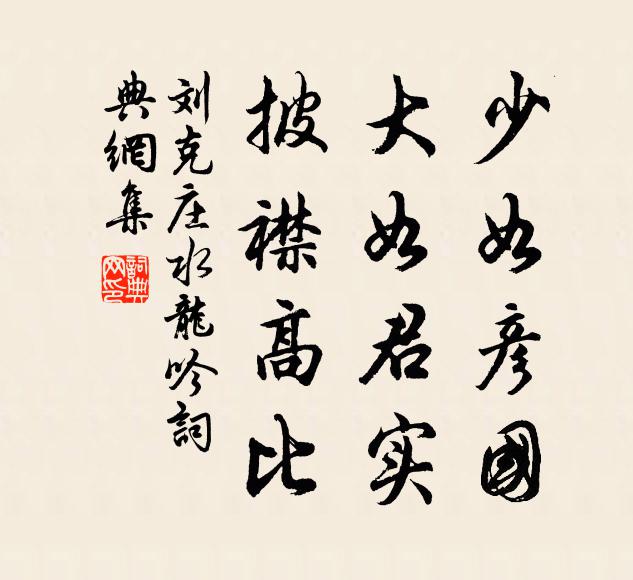 少如彦國
大如君实
披襟高比
刘克庄水龍吟詞
典網集
詞典網印